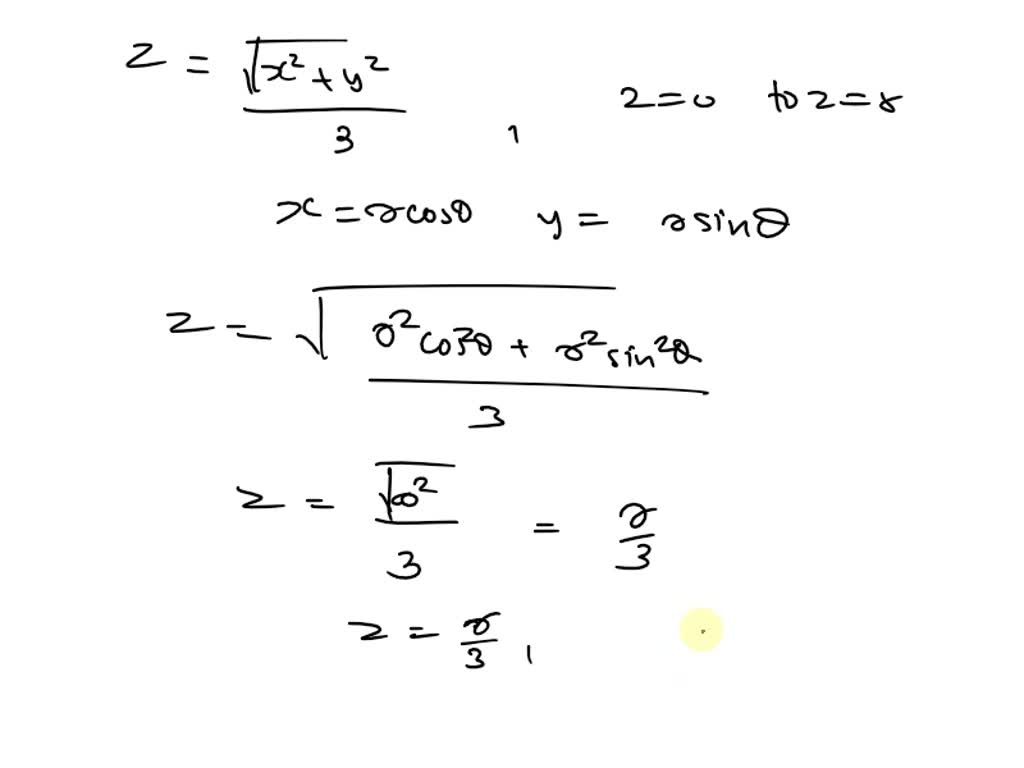 z = √(x² + y²) / 3 , z = 0 to z = r
x = r cosθ y = r sinθ
z = √(r² cos²θ + r² sin²θ) / 3
z = √r² / 3 = r/3
z = r/3 ,